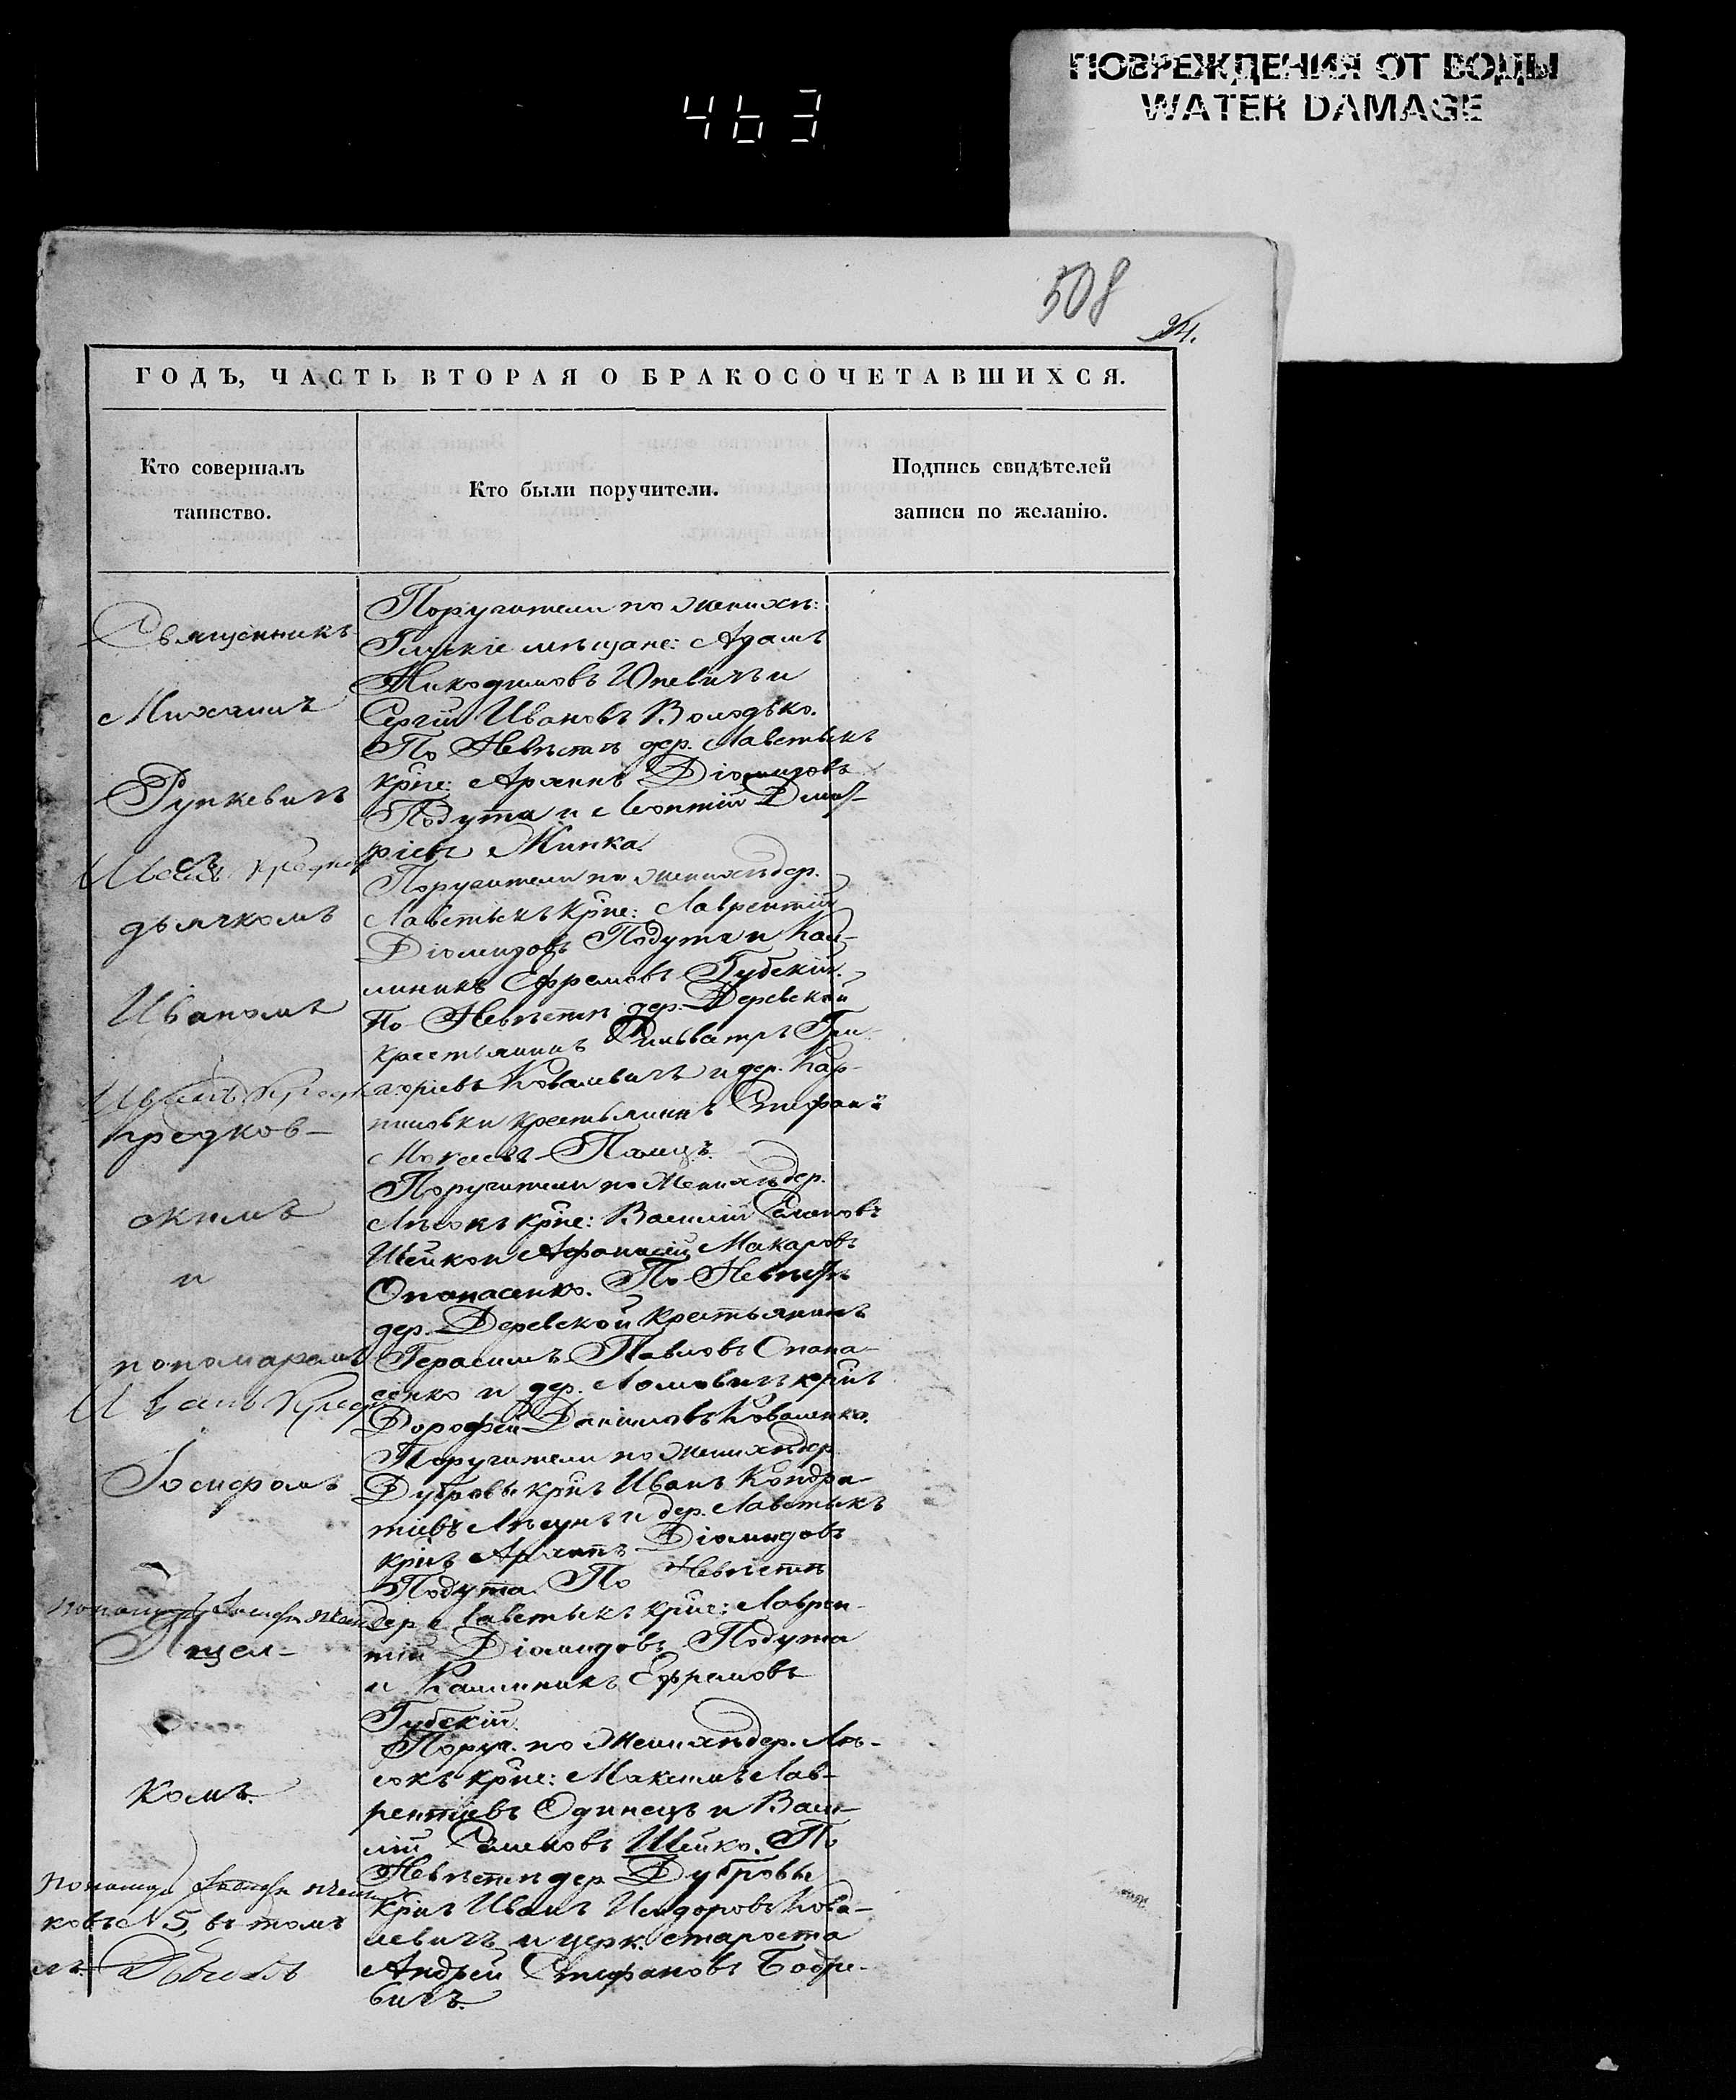 ПОВРЕЖДЕНИЯ ОТ ВОДЫ
WATER DAMAGE
463
508
24.
ГОДЪ, ЧАСТЬ ВТОРАЯ О БРАКОСОЧЕТАВШИХСЯ.
Кто совершалъ
таинство.
Кто были поручители.
Подпись свидѣтелей
записи по желанію.
Священникъ
Михаилъ
Рункевичъ
съ
дьячкомъ
Иваномъ
Кредков-
скимъ
и
пономаремъ
Іосифомъ
Пщел-
комъ.
Поручители по женихѣ:
Глускіе мѣщане: Адамъ
Никодимовъ Юневичъ и
Сергій Ивановъ Володько.
По Невѣстѣ дер. Лавстыкъ
кр͠не: Архипъ Діомидовъ
Подута и Леонтій Дмит-
ріевъ Минка.
Поручители по женихѣ дер.
Лавстыкъ кр͠не: Лаврентій
Діомидовъ Подута и Кал-
линикъ Ефремовъ Губскій.
По Невѣстѣ дер. Деревской
крестьянинъ Сильвестръ Гри-
горіевъ Ковалевичъ и дер. Кар-
пиловки крестьянинъ Стефанъ
Поручители по Женихѣ дер.
Лѣсокъ кр͠не: Василій Семеновъ
Шейко и Афанасій Макаровъ
Опанасенко. По Невѣстѣ
дер. Деревской крестьянинъ
Герасимъ Павловъ Опана-
сенко и дер. Ломовичъ кр͠нъ
Дорофей Даниловъ Коваленко.
Поручители по женихѣ дер.
Дубровы кр͠нъ Иванъ Кондра-
тіевъ Лѣсунъ и дер. Лавстыкъ
кр͠нъ Архипъ Діомидовъ
Подута. По Невѣстѣ
дер. Лавстыкъ кр͠не: Лаврен-
тій Діомидовъ Подута
и Каллиникъ Ефремовъ
Губскій.
Поруч. по Женихѣ дер. Лѣ-
сокъ кр͠не: Максимъ Лав-
рентіевъ Одинецъ и Васи-
лій Семеновъ Шейко. По
Невѣстѣ дер. Дубровы
кр͠нъ Иванъ Исидоровъ Кова-
левичъ и церк. староста
Андрей Стефановъ Бобре-
вичъ.